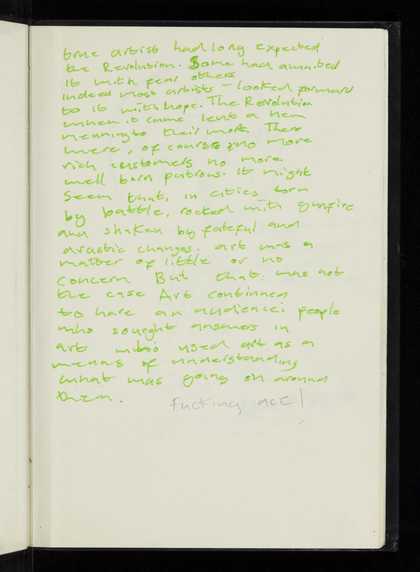 true artist had long expected
the Revolution. Some had awaited
it with fear others
indeed most artists - looked forward
to it with hope. The Revolution
when it came lent a new
meaning to their work. There
were, of course no more
rich customers no more
well born patrons. It might
seem that, in cities torn
by battle, rocked with gunfire
and shaken by fateful and
drastic changes. art was a
matter of little or no
concern But that was not
the case Art continued
to have an audience: people
who sought answers in
art who used art as a
means of understanding
what was going on around
them. Fucking ace!